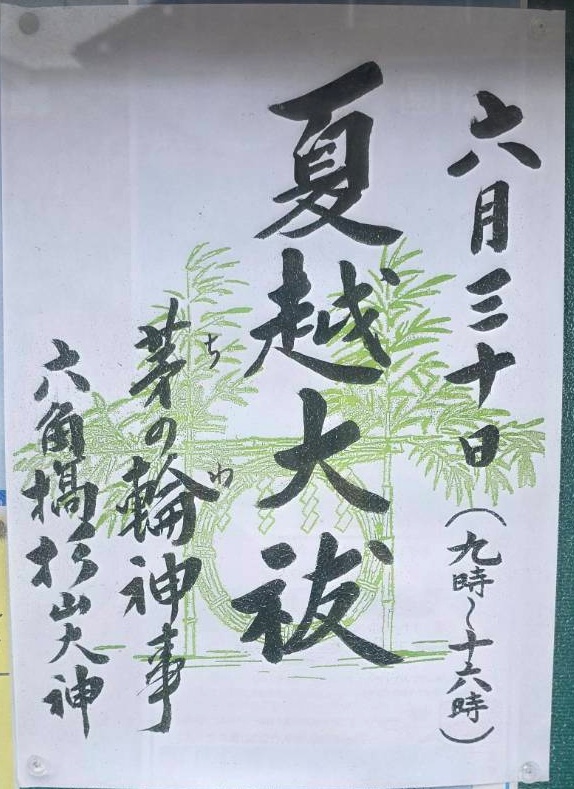 六月三十日(九時〜十六時)
夏越大祓
茅の輪神事
ち わ
六角橋杉山大神